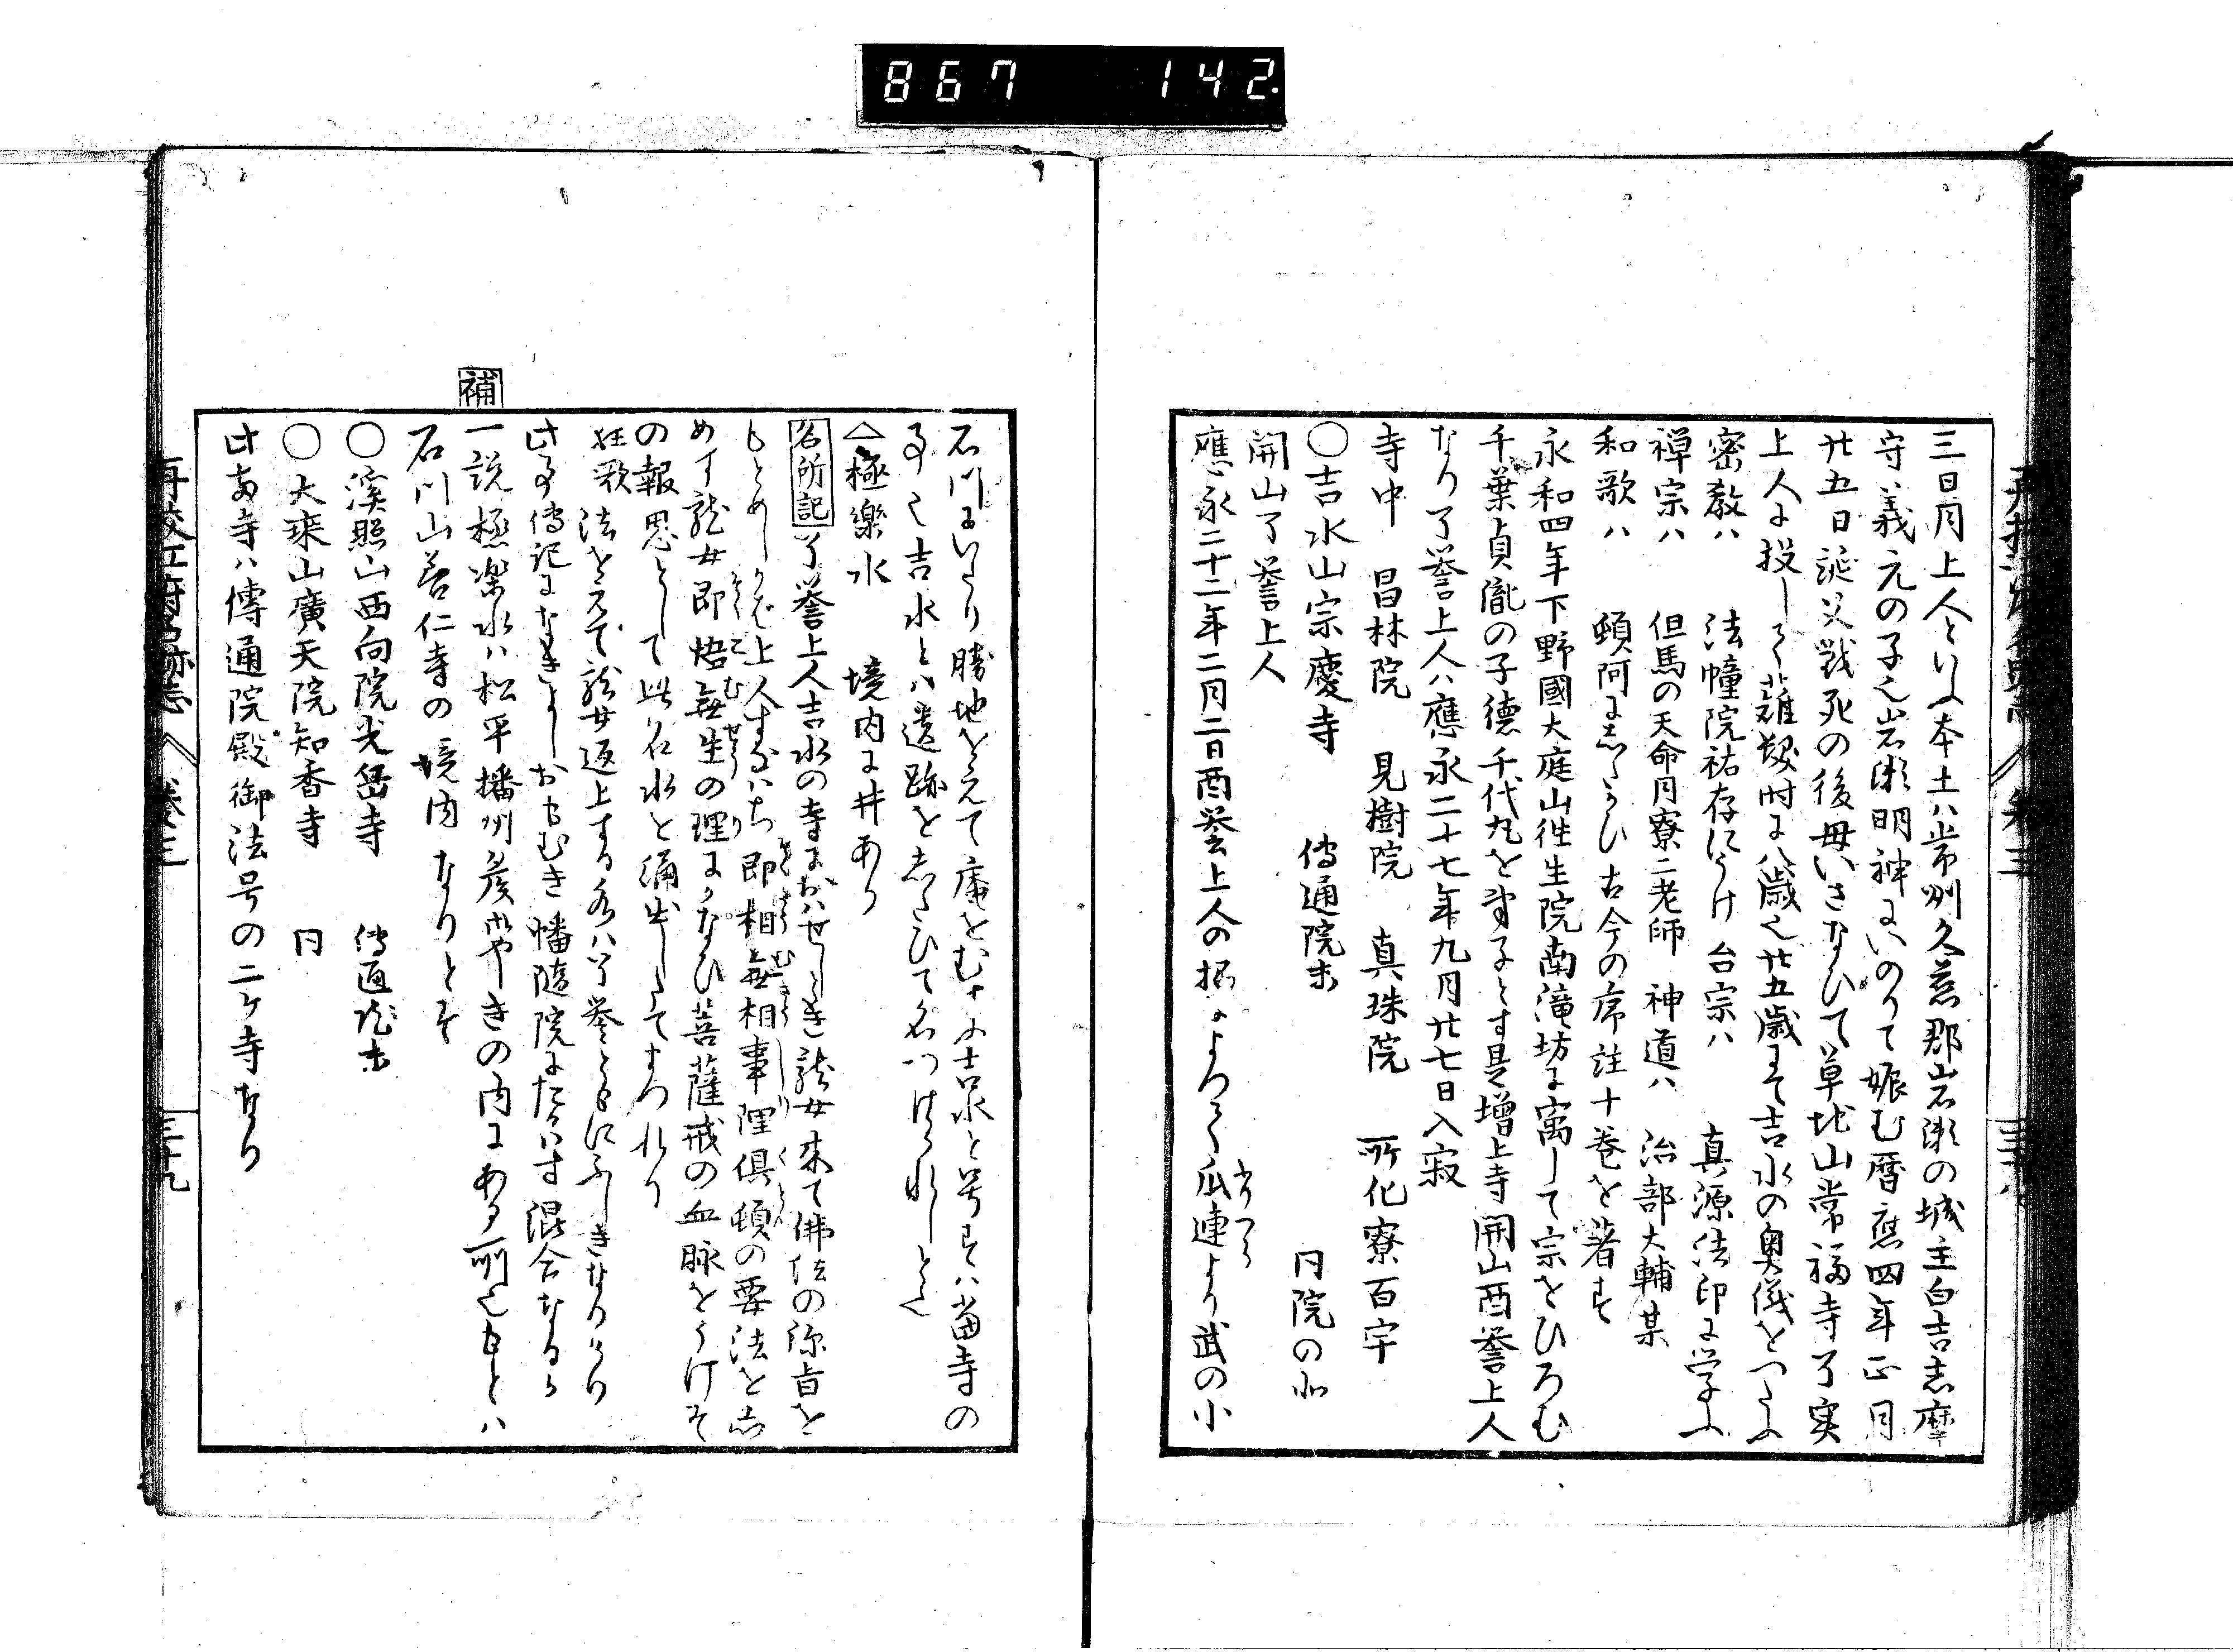 867 142
三日月上人といふ本土ハ常州久慈郡岩瀬の城主白吉志摩
守義元の子也岩瀬明神にいのりて娠む暦應四年正月
廿五日誕父戦死の後母いさなひて草地山常福寺了実
上人に投して薙髪時に八歳也廿五歳にて吉水の奥儀をつたふ
密教ハ 法幢院祐存にうけ 台宗ハ 真源法印に学ふ
禅宗ハ 但馬の天命月寮二老師 神道ハ 治部大輔某
和歌ハ 頓阿にしたかひ古今の序註十巻を著す
永和四年下野國大庭山徃生院南滝坊に寓して宗をひろむ
千葉貞胤の子徳千代丸を弟子とす是増上寺開山酉誉上人
なり了誉上人ハ應永二十七年九月廿七日入寂
寺中 昌林院 見樹院 真珠院 所化寮百宇
〇吉水山宗慶寺 傳通院末 同院の北
開山了誉上人
應永二十二年二月二日酉誉上人の招によつて瓜連より武の小
石川にいたり勝地をえて庵をむすふ吉水と号すハ當寺の
事也吉水とハ遺跡をしたひて名つけられしと也
△極樂水 境内に井あり
名所記 了誉上人吉水の寺におハせしとき龍女来て佛法の深旨を
もとめしかば上人すなハち即相無相事理俱頓の要法をし
めす龍女即悟無生の理にかなひ菩薩戒の血脉をうけそ
の報恩として此名水を涌出したてまつれり
狂歌 法をえて龍女返上する水ハ了誉ともにふしきなりけり
此事傳記になきよしおもむき幡随院にたかハす混合なるか
補
一説極楽水ハ松平播州矦御やしきの内にある所也もとハ
石川山善仁寺の境内なりとそ
〇渓照山西向院光岳寺 傳通院末
〇大乗山廣天院知香寺 同
此両寺ハ傳通院殿御法号の二ケ寺なり
再校江府名跡志 巻三 三十九